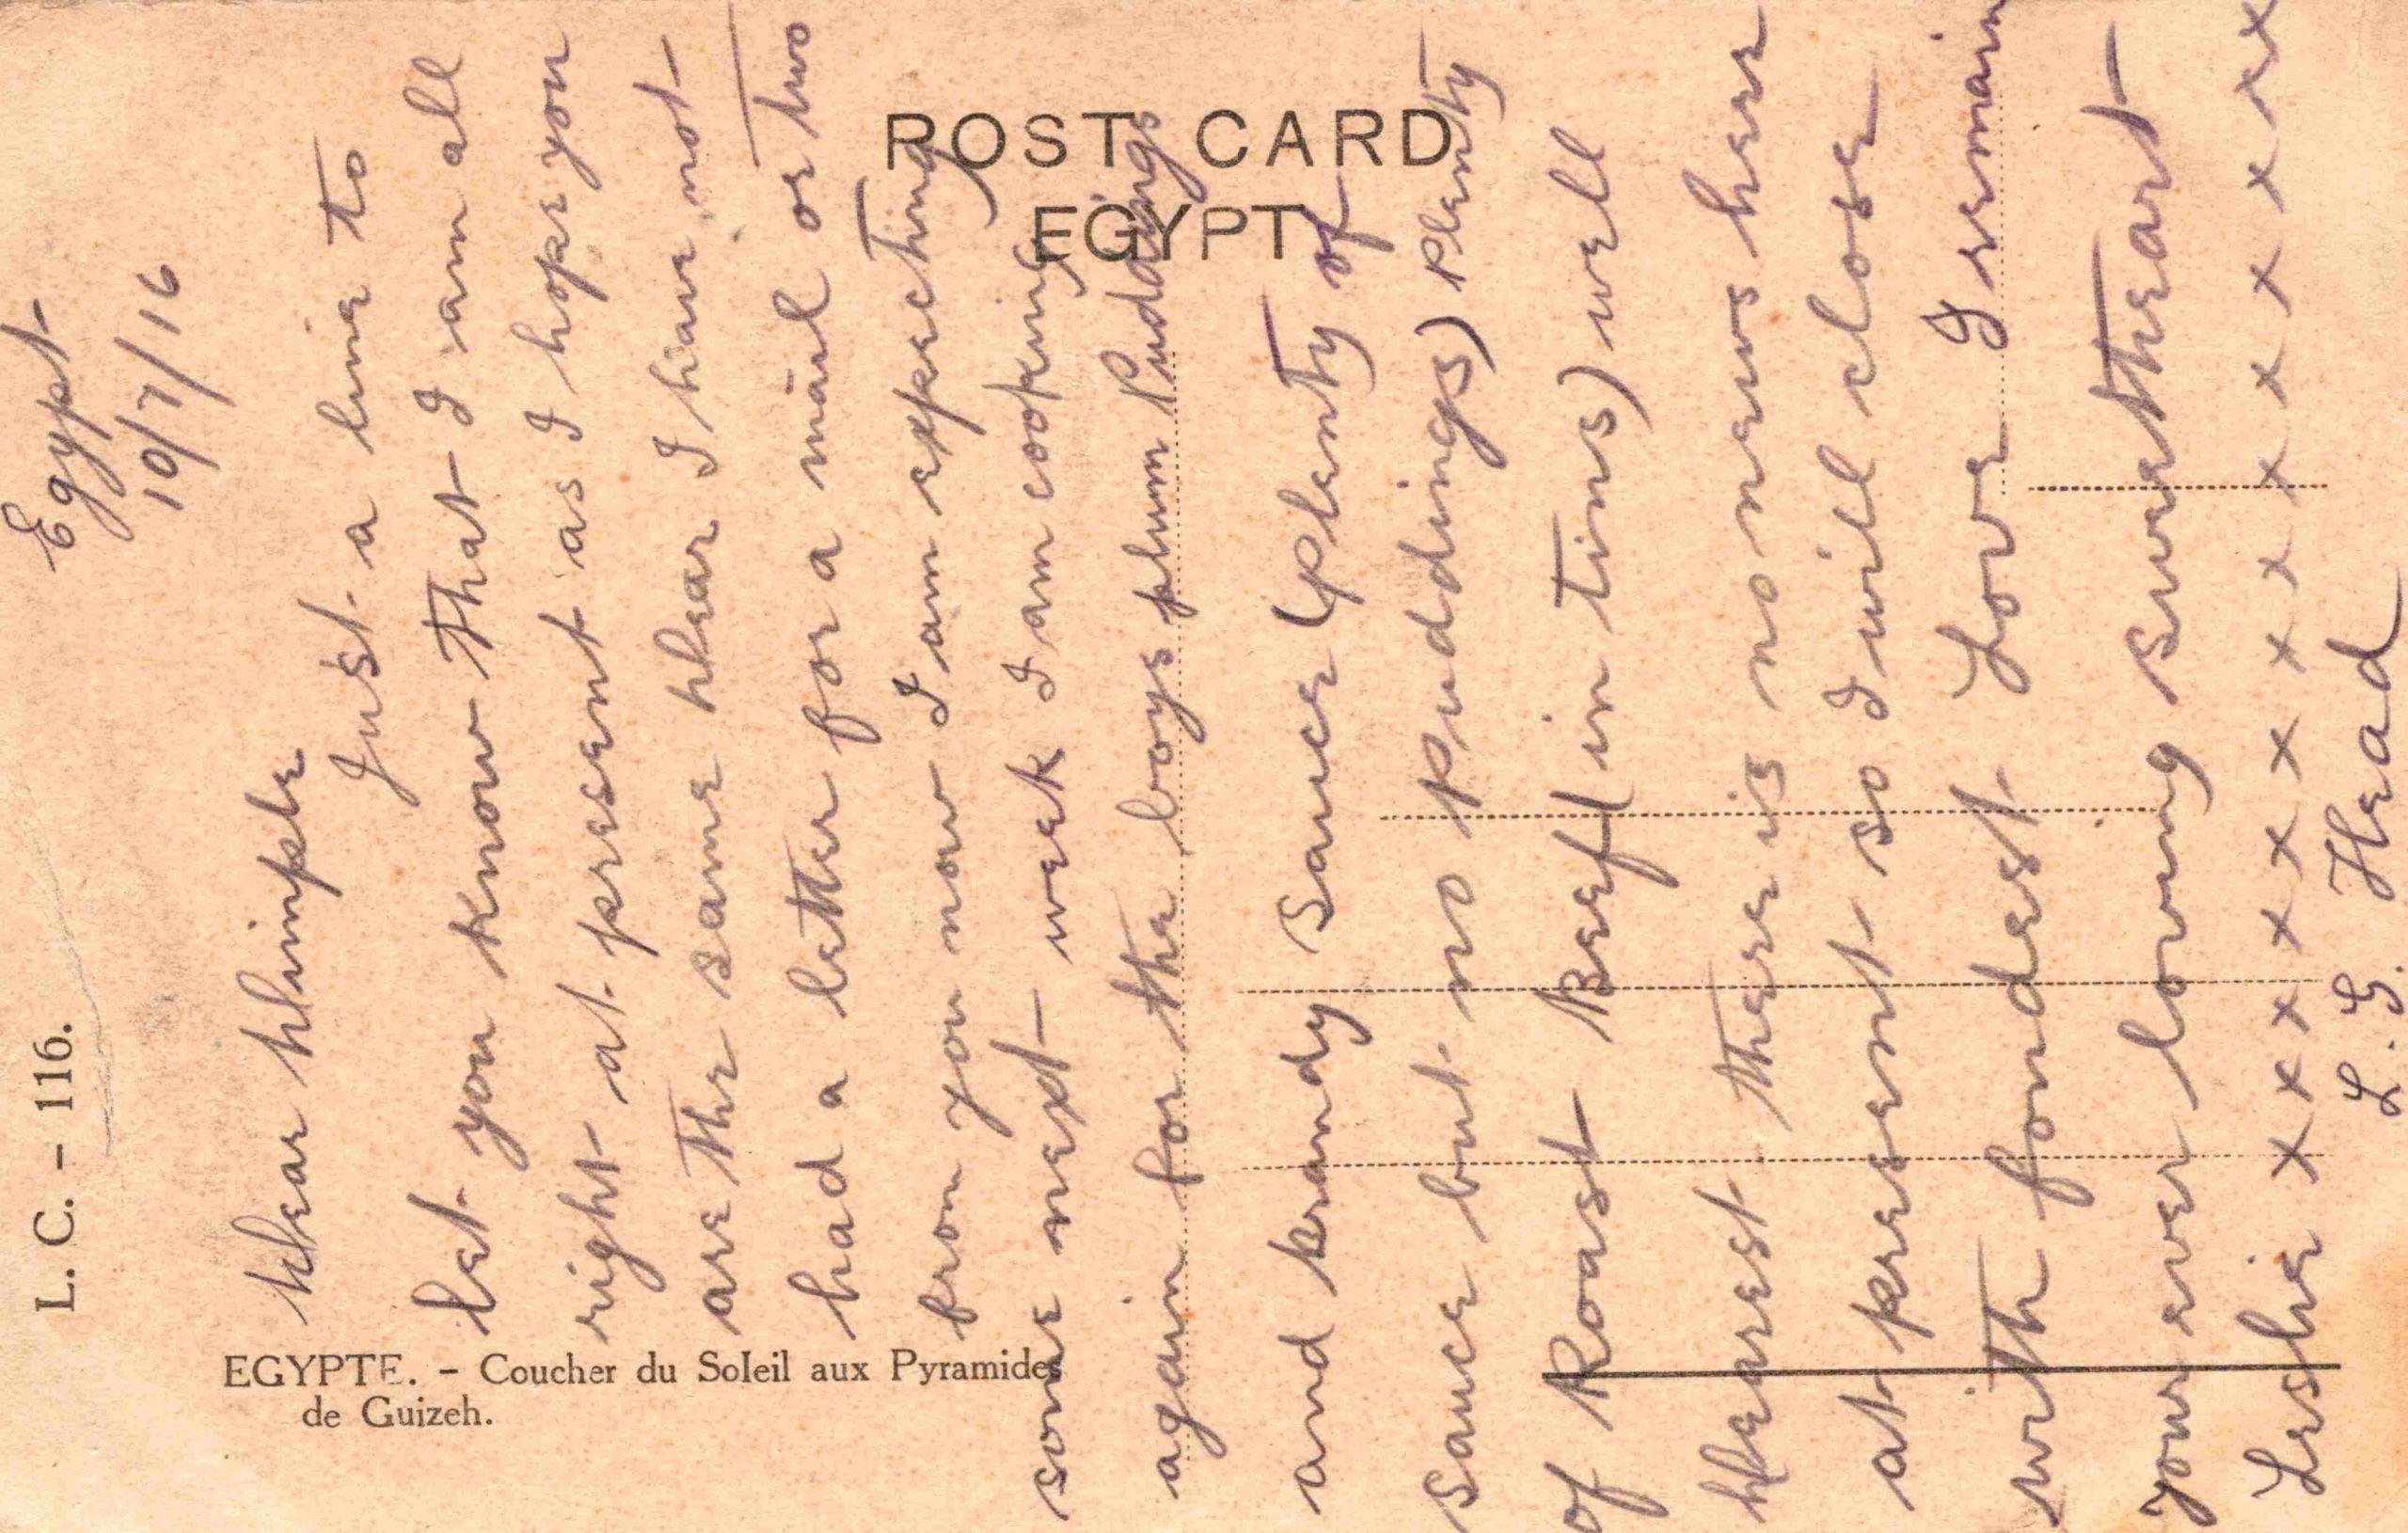 L. C. - 116.
POST CARD
EGYPT
EGYPTE. - Coucher du Soleil aux Pyramides
de Guizeh.
Egypt
10/7/16
Dear Dimple
Just a line to
let you know that I am all
right at present as I hope you
are the same Dear I have not
had a letter for a mail or two
from you now I am expecting
some next week I am cooking
again for the boys plum Puddings
and brandy sauce (plenty of
sauce but no puddings) plenty
of Roast Beef (in tins) well
Dearest there is no news here
at present so I will close
with fondest Love I remain
your ever loving sweetheart
Leslie x x x x x x x x x x x x x x
L. G. Head